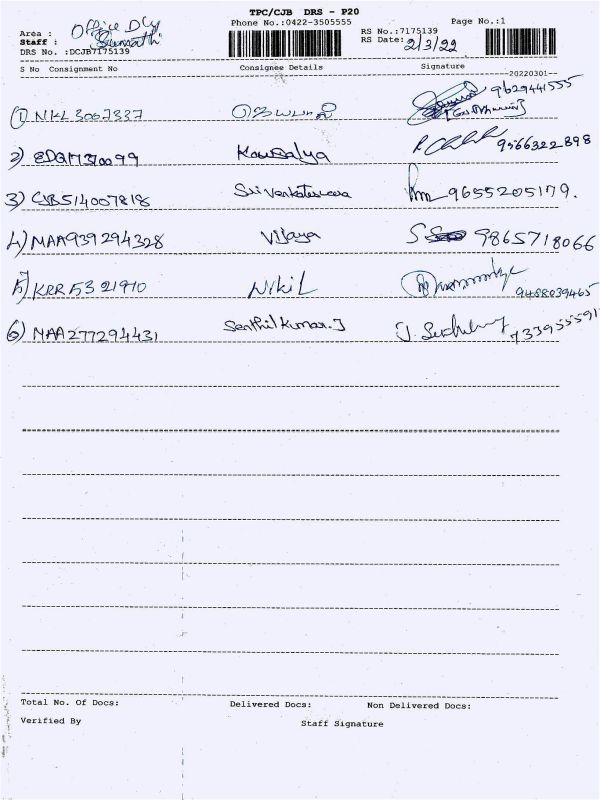 TPC/CJB DRS - P20
Phone No.:0422-3505555
Page No.:1
Area : Office Dly
Staff : Sumathi
DRS No. :DCJB7175139
RS No.:7175139
RS Date: 2/3/22
S No Consignment No Consignee Details Signature
--20220301--
1) NKL3007337 ஜெயபால் 9629441555
2) Kousalya 9566322898
3) CJB514007818 Sri Venkateswara 9655205179.
4) MAA939294328 Vijaya 9865718066
5) KRR5321910 Nikil 9488039465
6) MAA277294431 Senthil Kumar.J
Total No. Of Docs: Delivered Docs: Non Delivered Docs:
Verified By Staff Signature